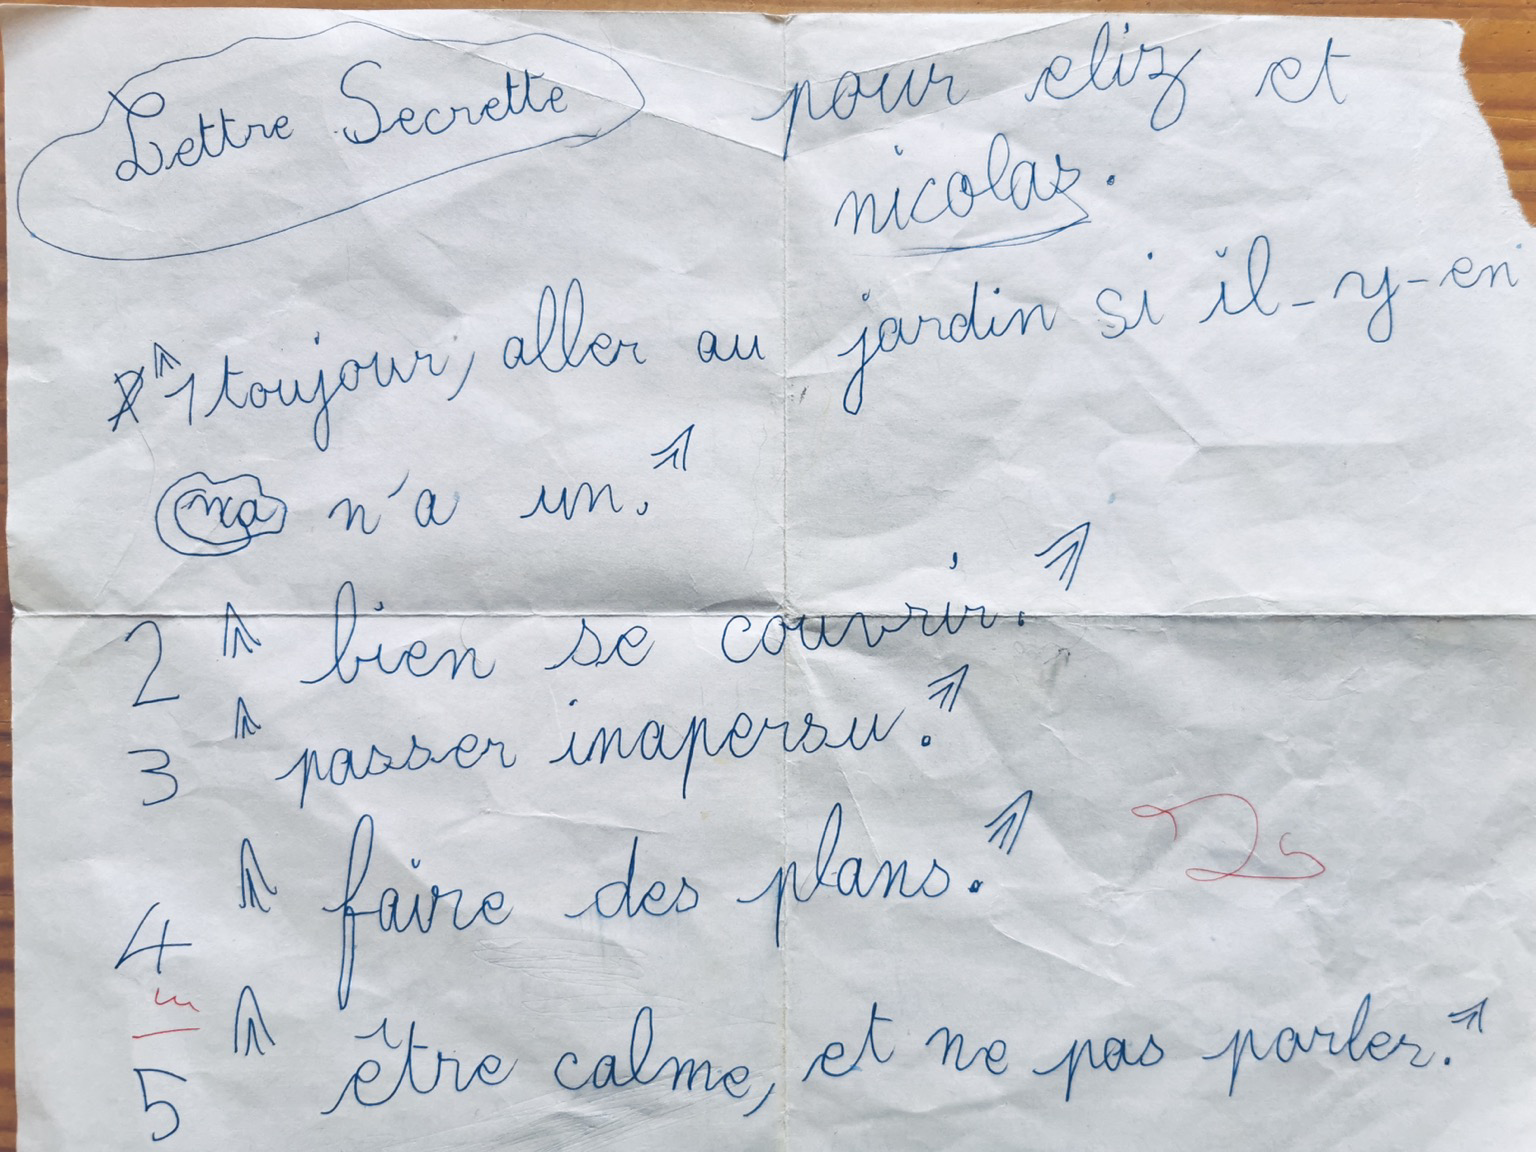 Lettre Secrette
pour eliz et
nicolas.
1 toujour, aller au jardin si il-y-en
n'a un.
2 bien se couvrir.
3 passer inapersu.
4 faire des plans.
5 être calme, et ne pas parler.